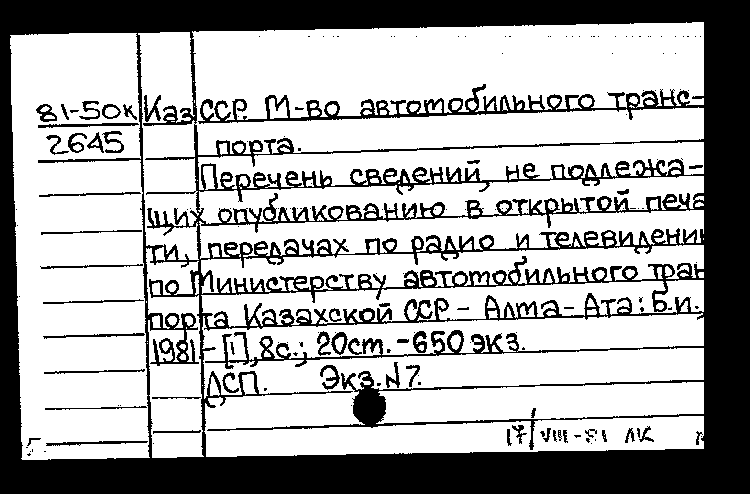 81-50к Каз ССР. М-во автомобильного транс-
2645 порта.
Перечень сведений, не подлежа-
щих опубликованию в открытой печа
ти, передачах по радио и телевидени
по Министерству автомобильного тран
порта Казахской ССР - Алма-Ата: Б.и.,
1981 - [1], 8с.; 20см. - 650 экз.
ДСП. Экз. N7.
17/VIII-81 ЛК